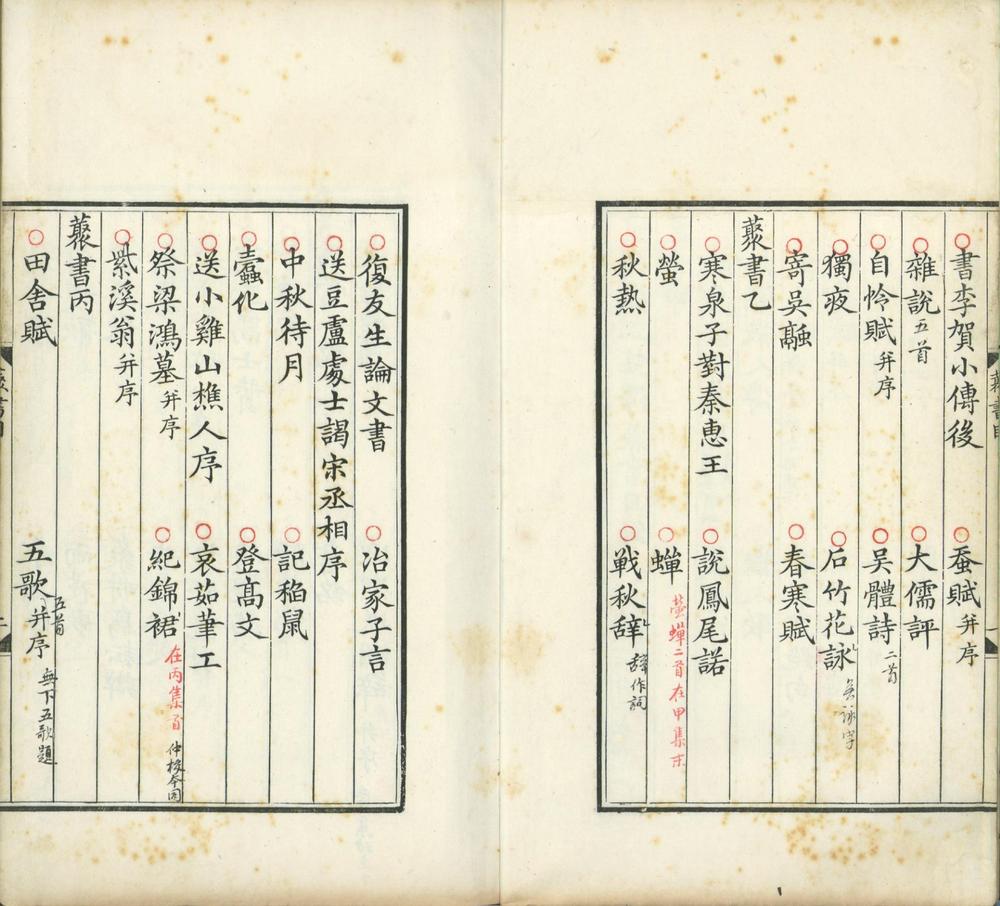 書李賀小傳後 蚕賦并序
雜說五首 大儒評
自怜賦并序 吳體詩二首
獨夜 后竹花詠 無詠字
寄吳融 春寒賦
藂書乙
寒泉子對秦惠王 說鳳尾諾
螢 蟬 螢蟬二首在甲集末
秋熱 戰秋辭 辭作詞
復友生論文書 冶家子言
送豆盧處士謁宋丞相序
中秋待月 記稻鼠
蠹化 登高文
送小雞山樵人序 哀茹筆工
祭梁鴻墓并序 紀錦裙 在丙集首 仲校本同
紫溪翁并序
藂書丙
田舍賦 五歌并序 五首 無下五歌題